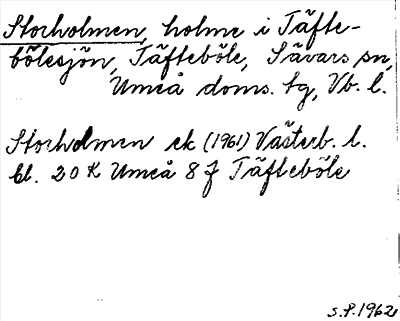 Storholmen, holme i Täfte-
bölesjön, Täfteböle, Sävars sn,
Umeå doms. tg, Vb. l.
Storholmen ek (1961) Västerb. l.
bl. 20 K Umeå 8 f Täfteböle
S.P. 1962